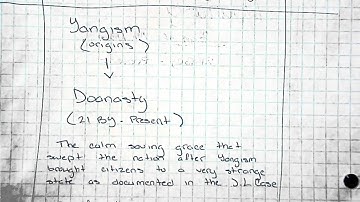 Yangism
(origins)
Doanasty
(21 By. Present)
The calm saving grace that
swept the nation after Yangism
brought citizens to a very strange
state as documented in the J.L Case